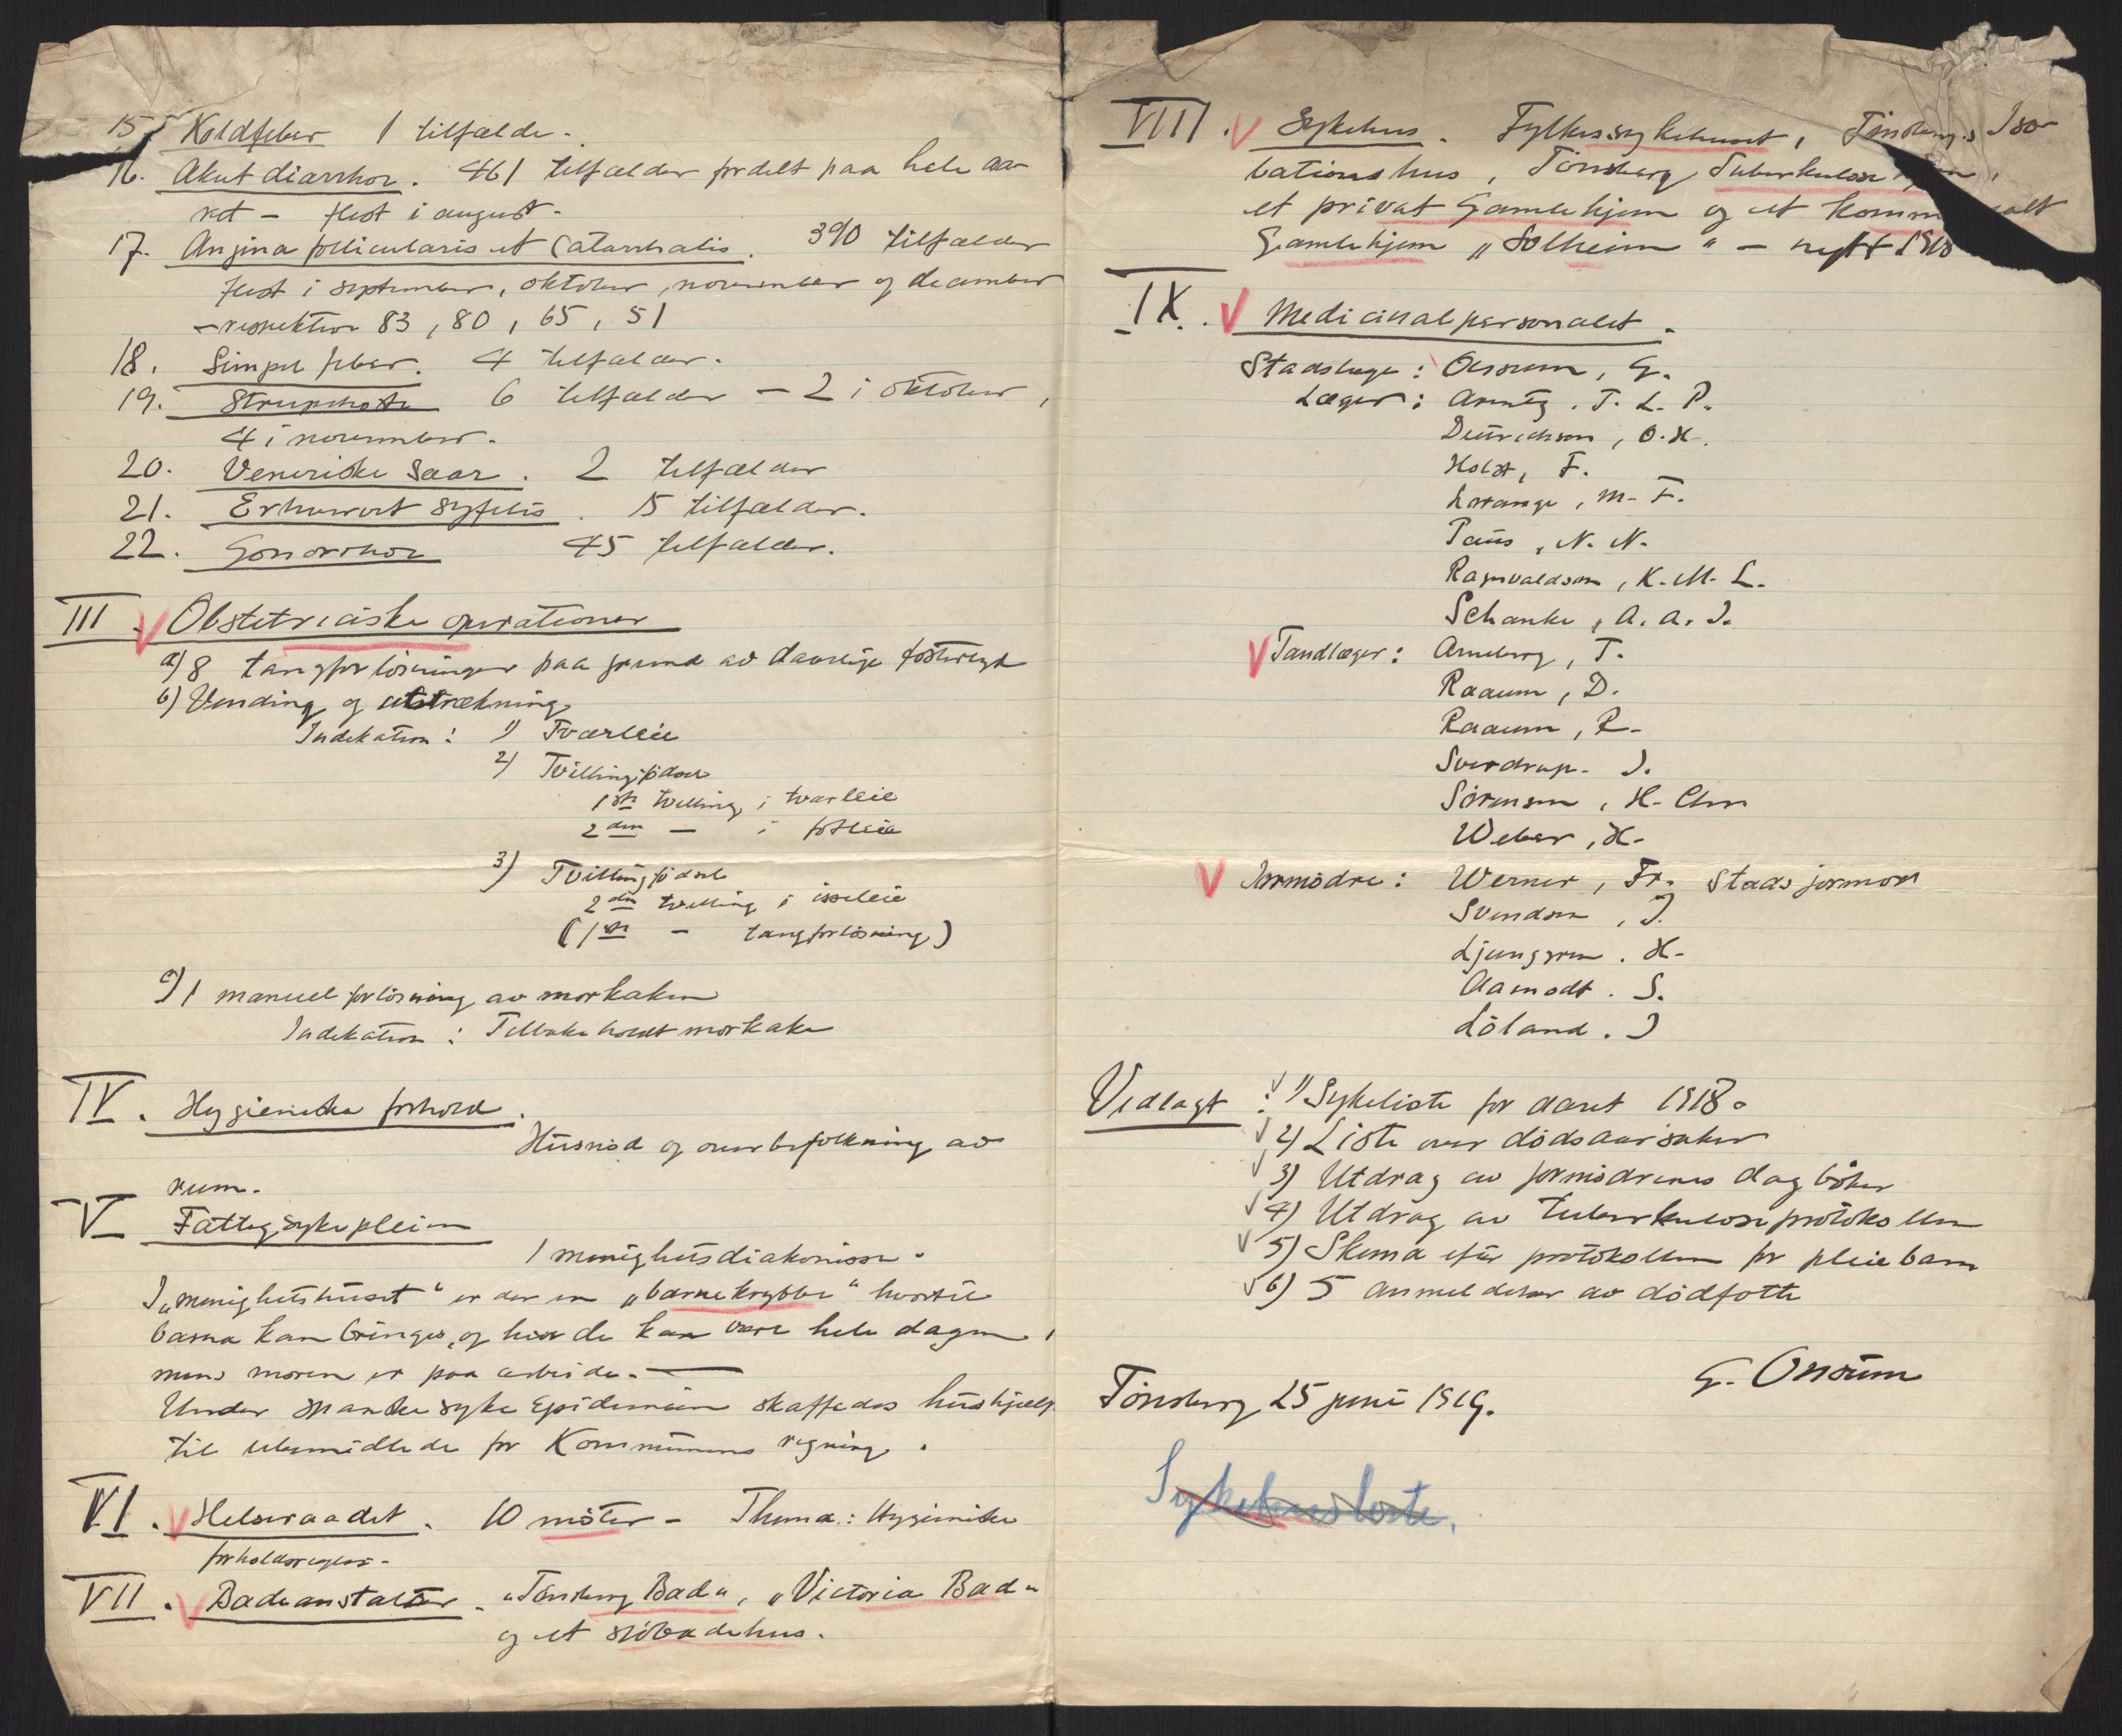 15. Koldfeber 1 tilfælde.
16. Akut diarrhoe. 461 tilfælder fordelt paa hele aa-
ret - flest i august.
17. Angina follicularis et Catarrhalis. 390 tilfælder
flest i september, oktober, november og december
- respektive 83, 80, 65, 51
18. Simpel feber. 4 tilfælder.
19. Strupehoste 6 tilfælder - 2 i oktober,
4 i november.
20. Veneriske saar. 2 tilfælder
21. Erhvervet syfilis. 15 tilfælder.
22. Gonorrhoe 45 tilfælder.
III. Obstetriciske operationer
a) 8 tangforløsninger paa grund av daarlige fosterlyd
b) Vending og utstrækning
Indikation: 1) Tværleie
2) Tvillingfødsel
1ste tvilling i tværleie
2den — i fotleie
3) Tvillingfødsel
2den tvilling i isseleie
(1ste - tangforløsning)
c) 1 manuel forløsning av morkaken
Indikation: Tilbakeholdt morkake
IV. Hygieniske forhold.
Husnød og overbefolkning av
rum.
V Fattigsykepleien
1 menighetsdiakonisse.
I „menighetshuset" er der en „barnekrybbe" hvortil
barna kan bringes, og hvor de kan være hele dagen,
mens moren er paa arbeide. —
Under spanske syke Epidemien skaffedes hushjælp
til ubemidlede for Kommunens regning.
VI. Helseraadet. 10 møter - Thema: Hygieniske
forholdsregler.
VII. Badeanstalter. „Tønsberg Bad", „Victoria Bad"
og et sjøbadehus.
VIII. Sykehus. Fylkessykehuset, Tønsbergs Iso-
lationshus, Tønsberg Tuberkulosehjem,
et privat Gamlehjem og et kommunalt
Gamlehjem „Solheim" - nytt 1918
IX. Medicinalpersonalet.
Stadslæge: Onsum, G.
Læger: Arentz, T. L. P.
Dietrichson, O. H.
Holst, F.
Lorange, M. F.
Paus, N. N.
Ragnvaldson, K. M. L.
Schanke, A. A. J.
Tandlæger: Arneberg, T.
Raaum, D.
Raaum, R.
Sverdrup. J.
Sørensen, H. Chr.
Weber, H.
Jormødre: Werner, Fr. Stadsjormor
Svendsen, J.
Ljunggren. H.
Aamodt. S.
Løland. J
Vedlagt: 1) Sykeliste for aaret 1918.
2) Liste over dødsaarsaker
3) Utdrag av jormødrenes dagbøker
4) Utdrag av tuberkuloseprotokollen
5) Skema efter protokollen for pleiebarn
6) 5 anmeldelser av dødfødte
G. Onsum
Tønsberg 25 juni 1919.
Sykehusliste.